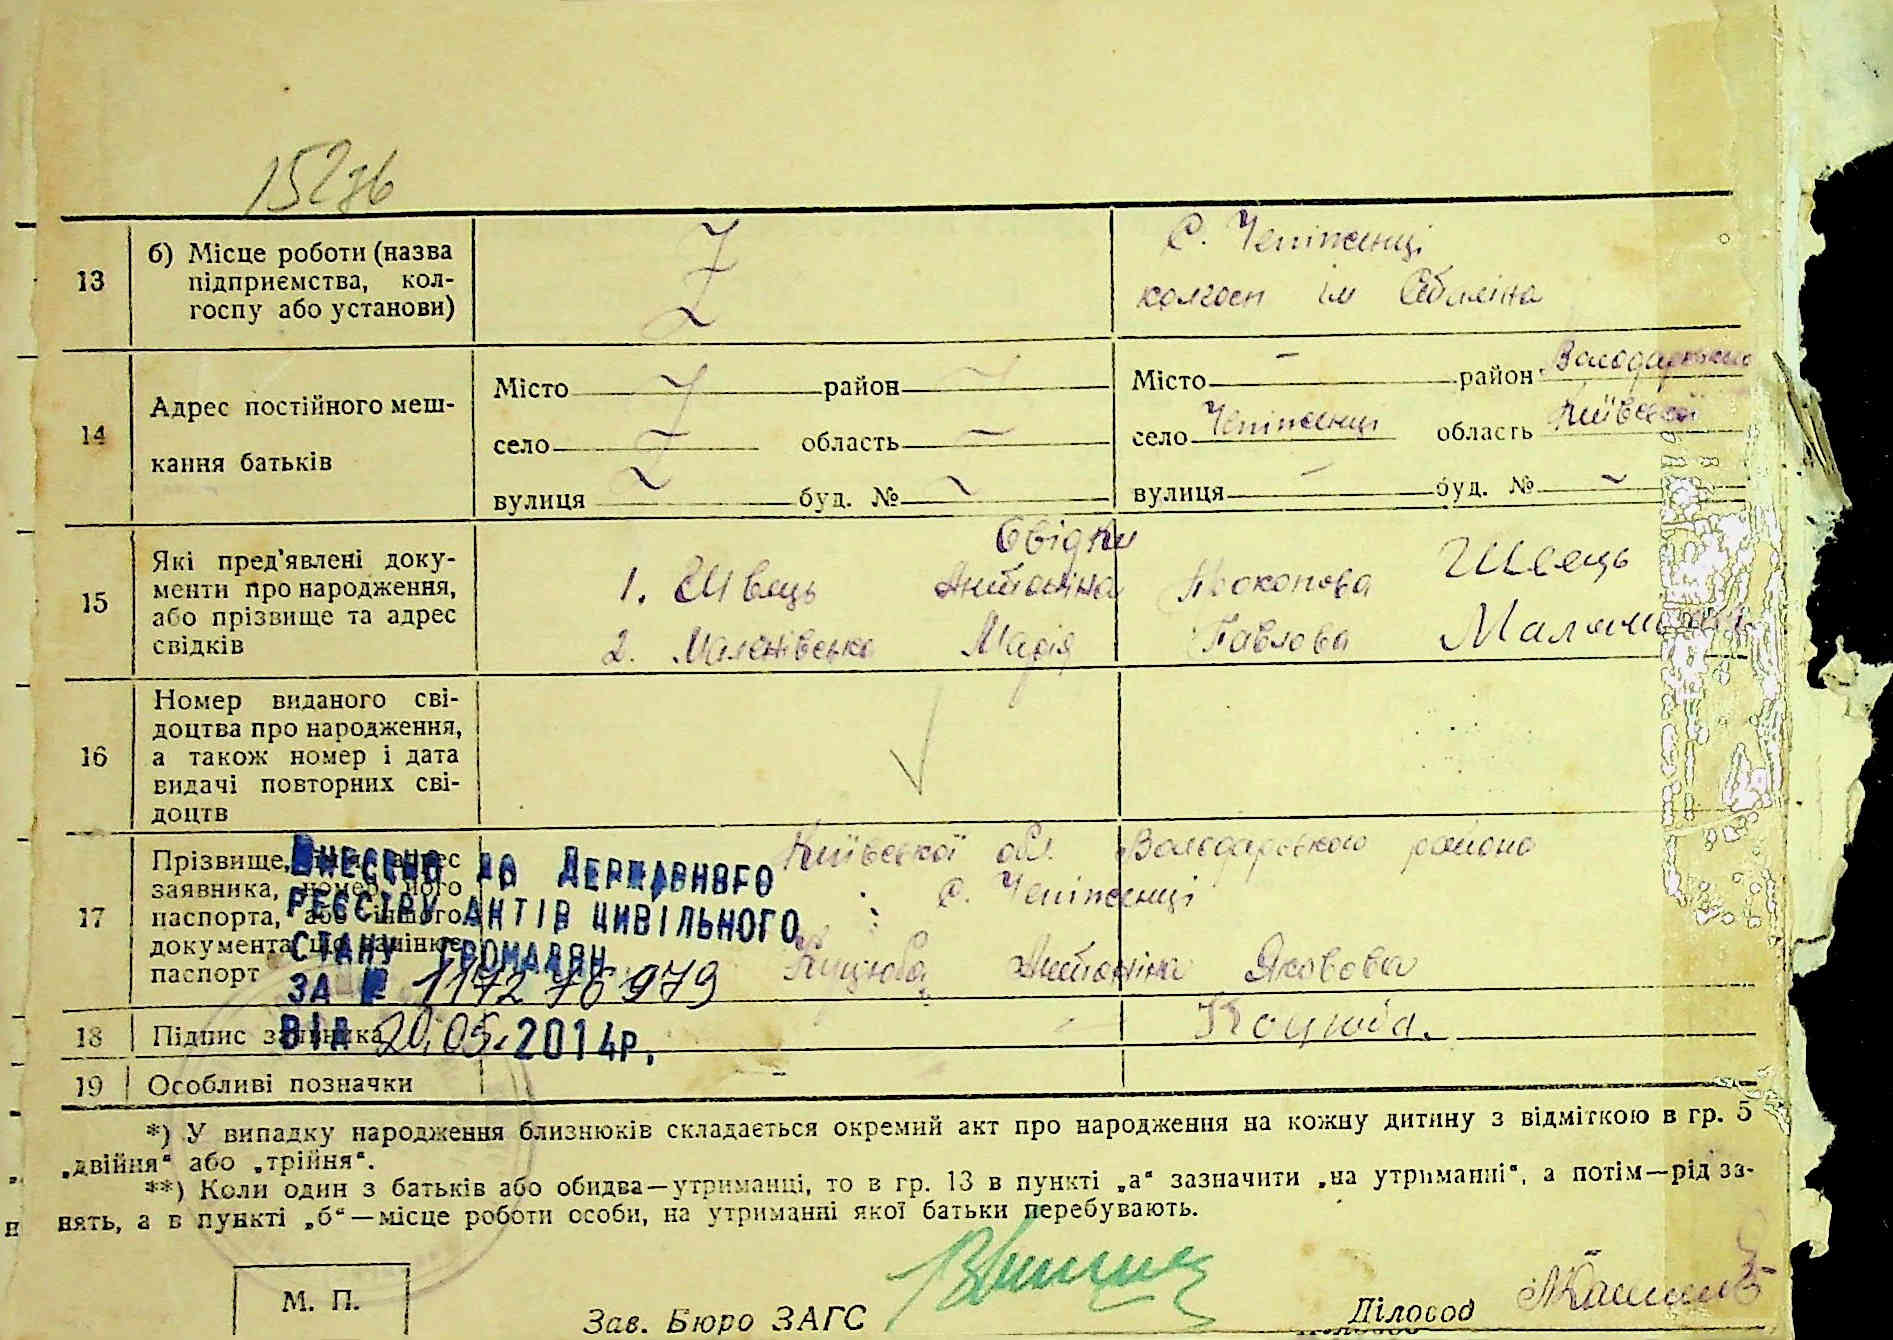 152зв
13
б) Місце роботи (назва
підприємства, кол-
госпу або установи)
с. Чепіженці
колгосп ім
14
Адрес постійного меш-
кання батьків
Місто район
село область
вулиця буд. №
Місто — район Володарського
село Чепіженці область Київської
вулиця — буд. № —
15
Які пред'явлені доку-
менти про народження,
або прізвище та адрес
свідків
Свідки
1. Швець Антоніна Прокопова Швець
2. Маленівська Марія Павлова
16
Номер виданого сві-
доцтва про народження,
а також номер і дата
видачі повторних сві-
доцтв
17
Прізвище, адрес
заявника, номер його
паспорта, або іншого
документа, що замінює
паспорт
Київської обл. Володарського района
с. Чепіженці
Коцюба Антоніна Яковова
ВНЕСЕНО ДО ДЕРЖАВНОГО
РЕЄСТРУ АКТІВ ЦИВІЛЬНОГО
СТАНУ ГРОМАДЯН
ЗА № 117276979
ВІД 20.05.2014р.
18
Підпис заявника
Коцюба.
19
Особливі позначки
*) У випадку народження близнюків складається окремий акт про народження на кожну дитину з відміткою в гр. 5
„двійня“ або „трійня“.
**) Коли один з батьків або обидва—утриманці, то в гр. 13 в пункті „а“ зазначити „на утриманні“, а потім—рід за-
нять, а в пункті „б“—місце роботи особи, на утриманні якої батьки перебувають.
М. П.
Зав. Бюро ЗАГС
Діловод